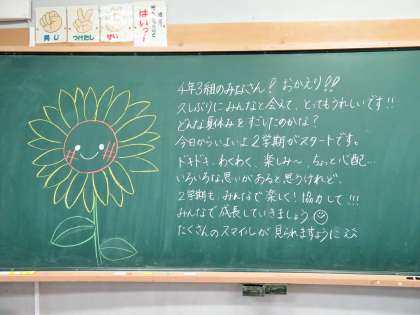 同じ
つけたし
はい?
4年3組のみなさん!おかえり!!
久しぶりにみんなと会えて、とってもうれしいです!!
どんな夏休みをすごしたのかな?
今日からいよいよ2学期がスタートです。
ドキドキ、わくわく、楽しみ〜、ちょっと心配…
いろいろな思いがあると思うけれど、
2学期も、みんなで楽しく!協力して!!!
みんなで成長していきましょう
たくさんのスマイルが見られますように